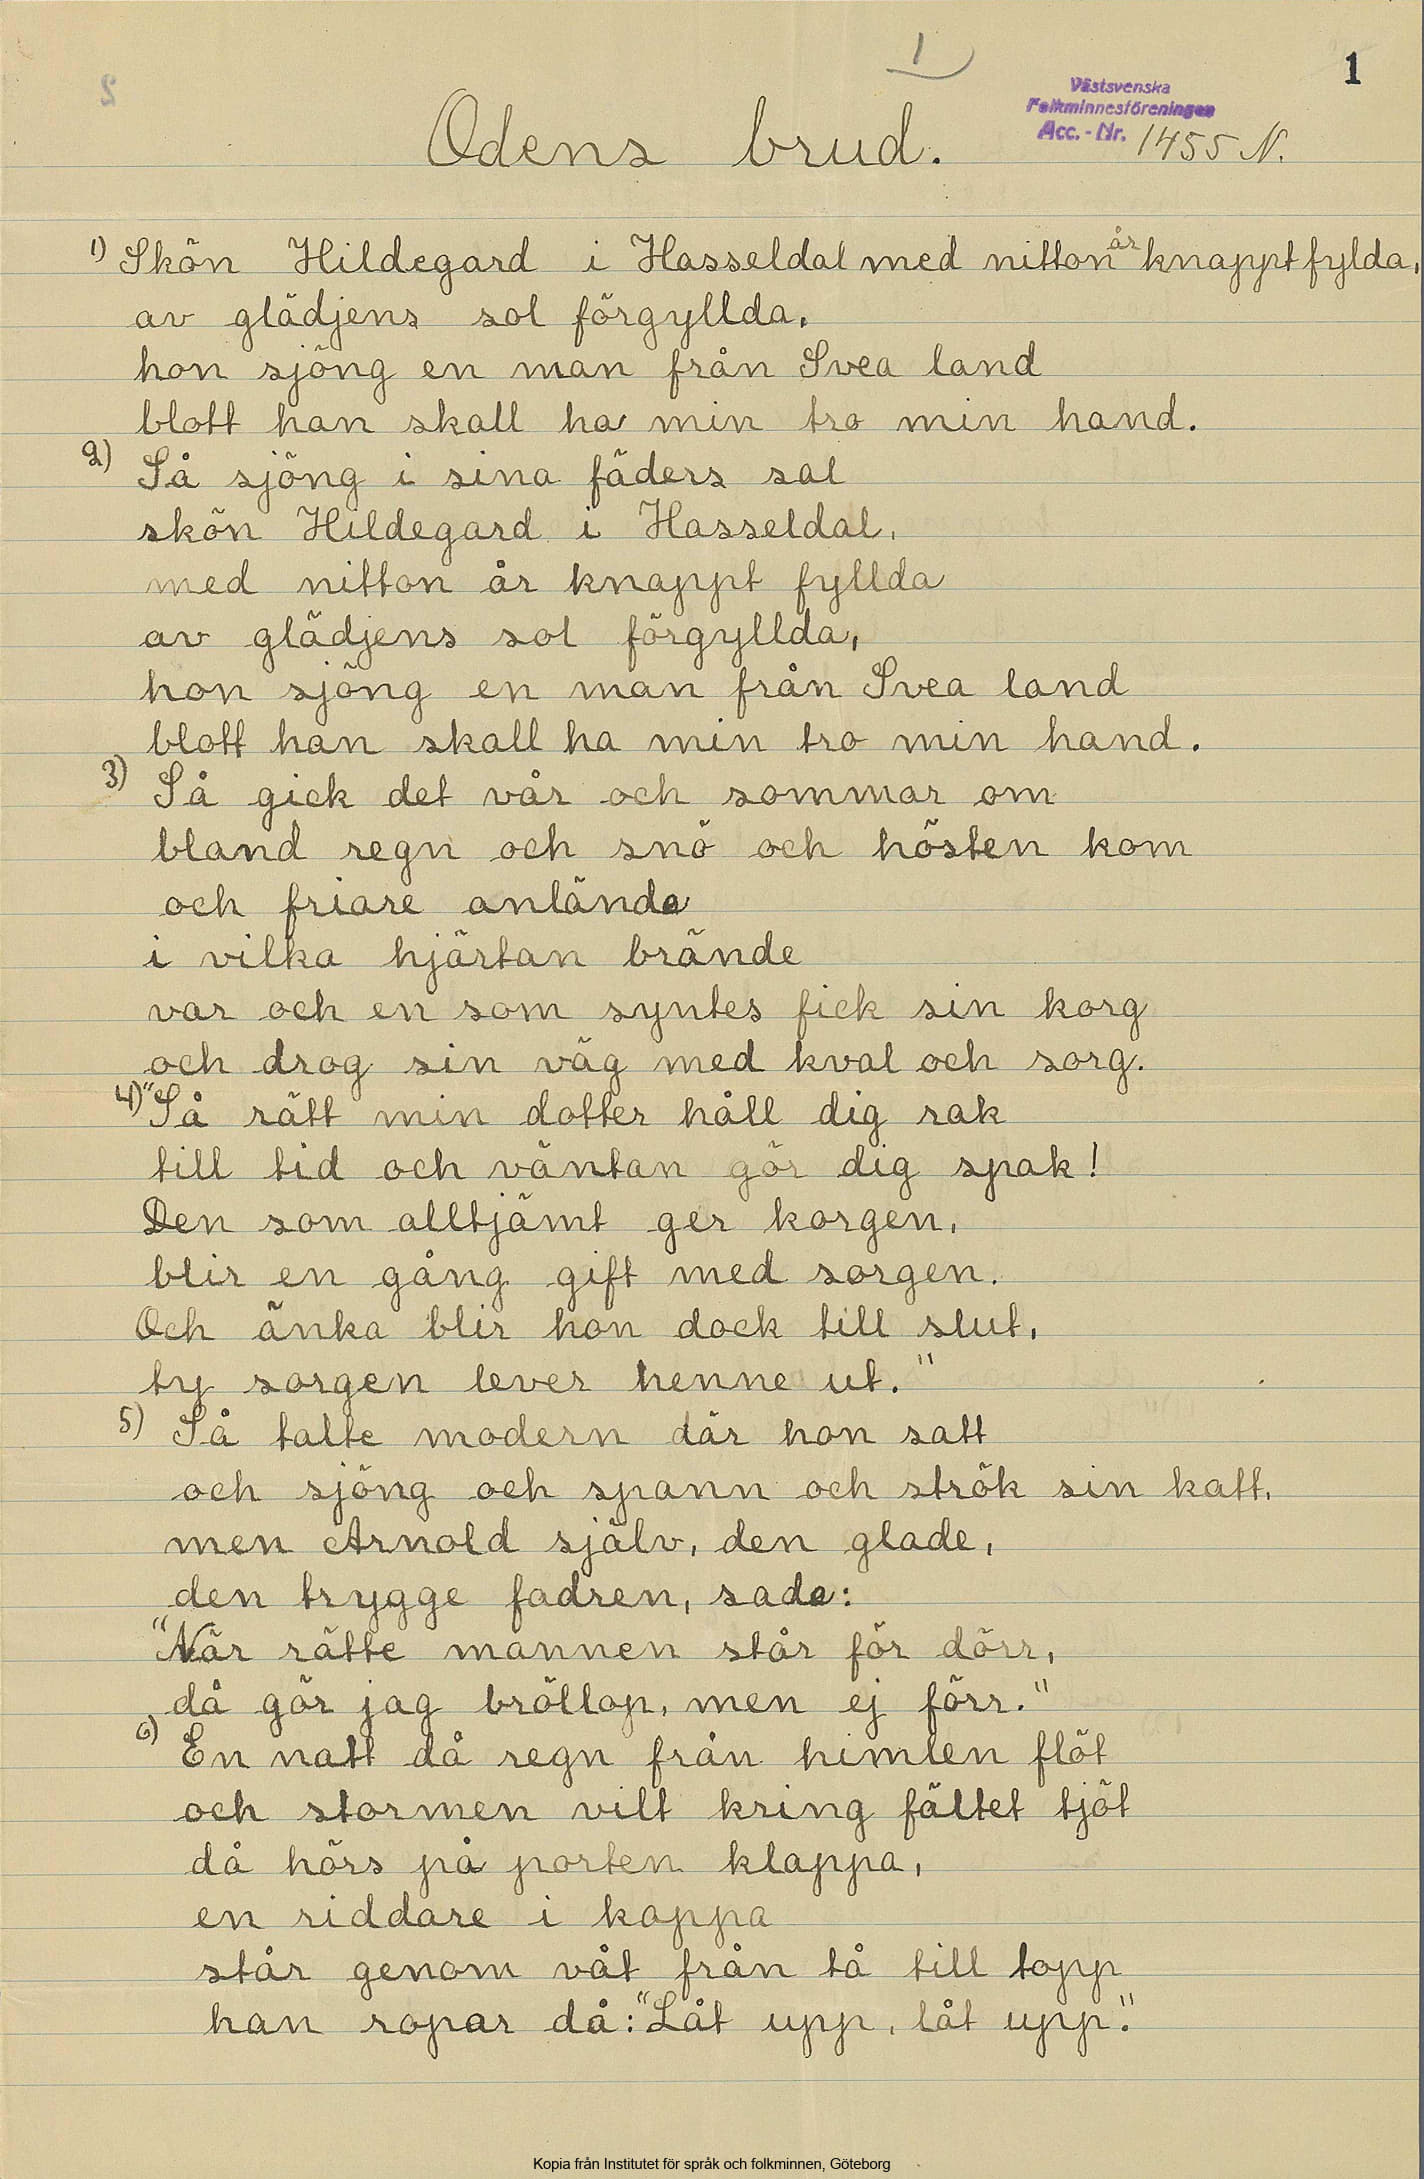 1
1
Västsvenska
Folkminnesföreningen
Acc.-Nr. 1455 N.
2
Odens brud.
1) Skön Hildegard i Hasseldal med nitton år knappt fylda,
av glädjens sol förgyllda,
hon sjöng en man från Svea land
blott han skall ha min tro min hand.
2) Så sjöng i sina fäders sal
skön Hildegard i Hasseldal,
med nitton år knappt fyllda
av glädjens sol förgyllda,
hon sjöng en man från Svea land
blott han skall ha min tro min hand.
3) Så gick det vår och sommar om
bland regn och snö och hösten kom
och friare anlände
i vilka hjärtan brände
var och en som syntes fick sin korg
och drog sin väg med kval och sorg.
4) "Så rätt min dotter håll dig rak
till tid och väntan gör dig spak!
Den som alltjämt ger korgen,
blir en gång gift med sorgen.
Och änka blir hon dock till slut,
ty sorgen lever henne ut."
5) Så talte modern där hon satt
och sjöng och spann och strök sin katt,
men Arnold själv, den glade,
den trygge fadren, sade:
"När rätte mannen står för dörr,
då gör jag bröllop, men ej förr."
6) En natt då regn från himlen flöt
och stormen vilt kring fältet tjöt
då hörs på porten klappa,
en riddare i kappa
står genom våt från tå till topp
han ropar då: "Låt upp, låt upp."
Kopia från Institutet för språk och folkminnen, Göteborg